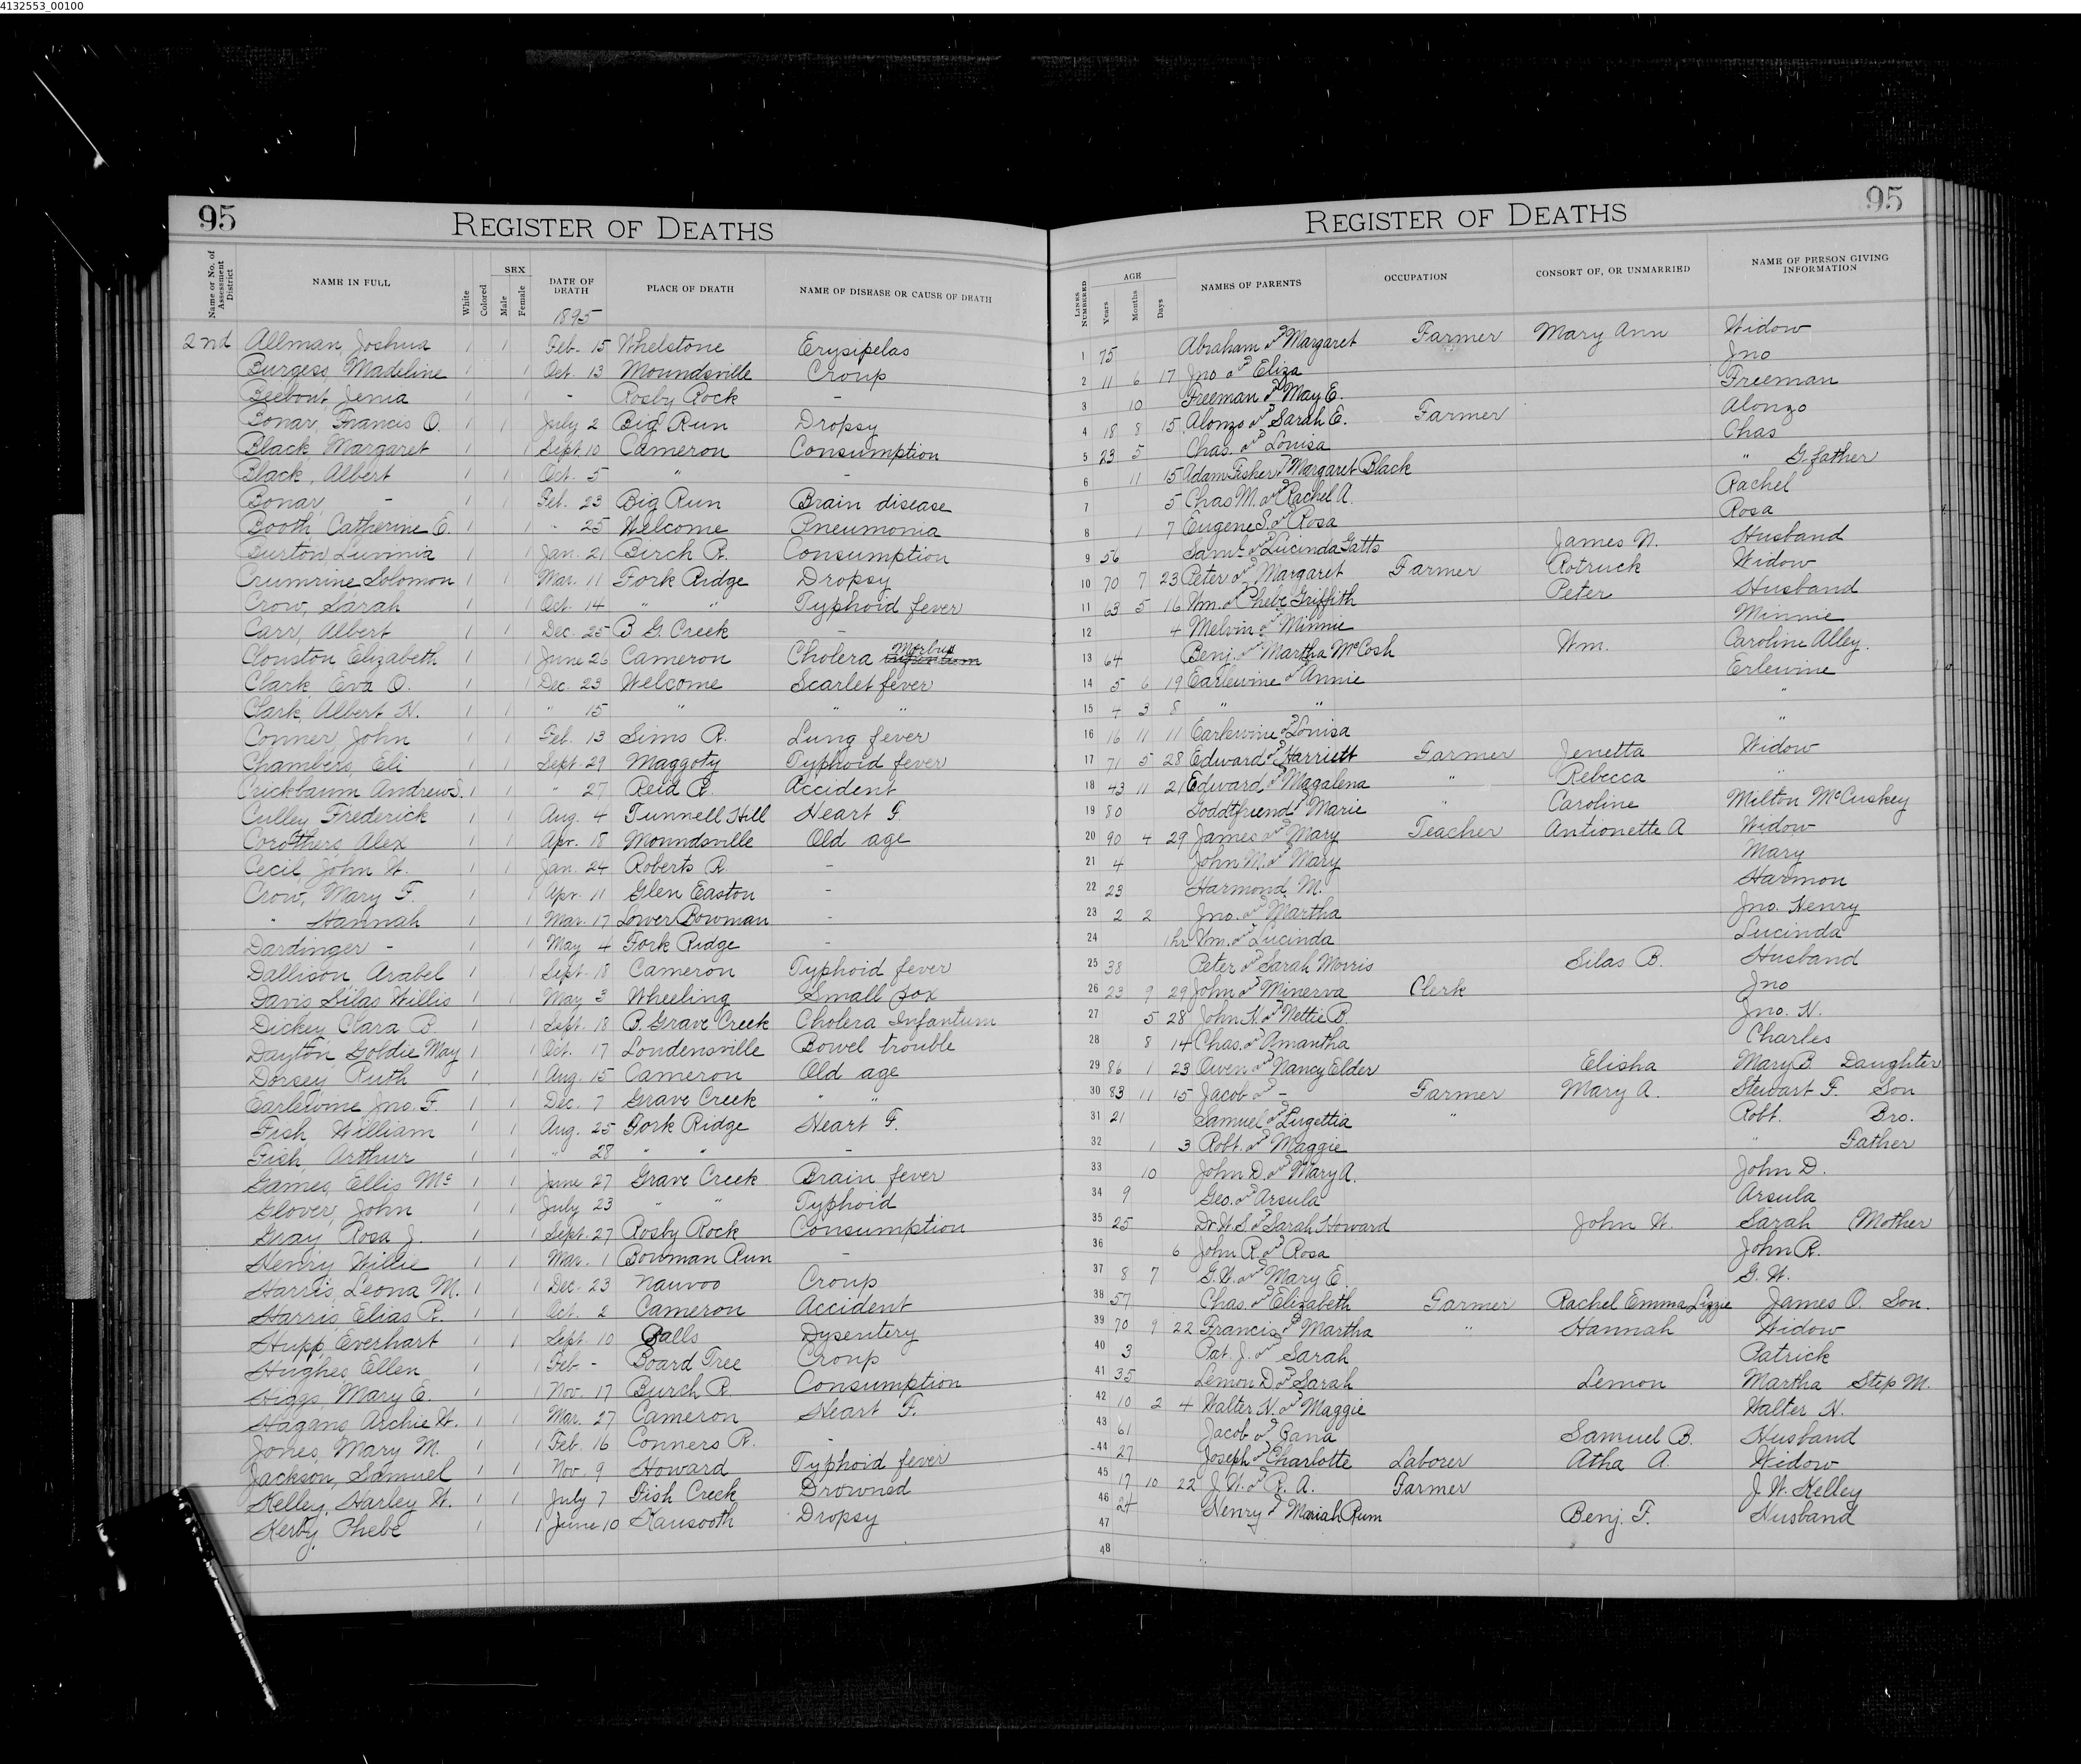 4132553_00100
95 REGISTER OF DEATHS
REGISTER OF DEATHS 95
Name or No. of Assessment District NAME IN FULL White Colored SEX Male Female DATE OF DEATH PLACE OF DEATH NAME OF DISEASE OR CAUSE OF DEATH LINES NUMBERED AGE Years Months Days NAMES OF PARENTS OCCUPATION CONSORT OF, OR UNMARRIED NAME OF PERSON GIVING INFORMATION
1895
2nd Allman, Joshua 1 1 Feb. 15 Whelstone Erysipelas 1 75 Abraham and Margaret Farmer Mary Ann Widow
Burgess, Madeline 1 1 Oct. 13 Moundsville Croup 2 11 6 17 Jno and Eliza Jno
Beebout, Jenia 1 1 - Rosby Rock - 3 10 Freeman and May E. Freeman
Bonar, Francis O. 1 1 July 2 Big Run Dropsy 4 18 8 15 Alonzo and Sarah E. Farmer Alonzo
Black, Margaret 1 1 Sept. 10 Cameron Consumption 5 23 5 Chas. and Louisa Chas
Black, Albert 1 1 Oct. 5 " - 6 11 15 Adam Fisher and Margaret Black " G. father
Bonar, - 1 1 Feb. 23 Big Run Brain disease 7 5 Chas M. and Rachel A. Rachel
Booth, Catherine E. 1 1 " 25 Welcome Pneumonia 8 1 7 Eugene S. and Rosa Rosa
Burton, Lunnia 1 1 Jan. 21 Birch R. Consumption 9 56 Saml. and Lucinda Gatts James N. Husband
Crumrine Solomon 1 1 Mar. 11 Fork Ridge Dropsy 10 70 7 23 Peter and Margaret Farmer Rotruck Widow
Crow, Sarah 1 1 Oct. 14 " " Typhoid fever 11 63 5 16 Wm. and Phebe Griffith Peter Husband
Carr, Albert 1 1 Dec. 25 B G. Creek - 12 4 Melvin and Minnie Minnie
Clouston Elizabeth 1 1 June 26 Cameron Cholera Morbus 13 64 Benj. and Martha McCosh Wm. Caroline Alley.
Clark, Eva O. 1 1 Dec. 23 Welcome Scarlet fever 14 5 6 19 Earlewine and Annie Erlewine
Clark, Albert H. 1 1 " 15 " " " 15 4 3 8 " " "
Conner, John 1 1 Feb. 13 Sims R. Lung fever 16 16 11 11 Earlewine and Louisa "
Chambers, Eli 1 1 Sept. 29 Maggoty Typhoid fever 17 71 5 28 Edward and Harriett Farmer Jenetta Widow
Crickbaum Andrew J. 1 1 " 27 Reid R. Accident 18 43 11 21 Edward and Magalena " Rebecca "
Culley Frederick 1 1 Aug. 4 Tunnell Hill Heart F. 19 80 Goddtfriend and Marie " Caroline Milton McCuskey
Corothers Alex 1 1 Apr. 18 Moundsville Old age 20 90 4 29 James and Mary Teacher Antionette A Widow
Cecil, John W. 1 1 Jan. 24 Roberts R. - 21 4 John M. and Mary Mary
Crow, Mary F. 1 1 Apr. 11 Glen Easton - 22 23 Harmond M. Harmon
" Hannah 1 1 Mar. 17 Lower Bowman - 23 2 2 Jno. and Martha Jno. Henry
Dardinger - 1 1 May 4 Fork Ridge - 24 1 hr Wm. and Lucinda Lucinda
Dallison, Arabel 1 1 Sept. 18 Cameron Typhoid fever 25 38 Peter and Sarah Morris Silas B. Husband
Davis Silas Willis 1 1 May 3 Wheeling Small pox 26 23 9 29 John and Minerva Clerk Jno
Dickey Clara B. 1 1 Sept. 18 B. Grave Creek Cholera Infantum 27 5 28 John N. and Nettie B. Jno. N.
Dayton, Goldie May 1 1 Oct. 17 Loudensville Bowel trouble 28 8 14 Chas. and Amantha Charles
Dorsey Ruth 1 1 Aug. 15 Cameron Old age 29 86 1 23 Owen and Nancy Elder Elisha Mary B. Daughter
Earlewine Jno. F. 1 1 Dec. 7 Grave Creek " " 30 83 11 15 Jacob and - Farmer Mary A. Stewart F. Son
Fish, William 1 1 Aug. 25 Fork Ridge Heart F. 31 21 Samuel and Lugettia " Robt. Bro.
Fish, Arthur 1 1 " 28 " " - 32 1 3 Robt. and Maggie " Father
Games, Ellis Mc 1 1 June 27 Grave Creek Brain fever 33 10 John D. and Mary A. John D.
Glover, John 1 1 July 23 " " Typhoid 34 9 Geo. and Arsula Arsula
Gray, Rosa J. 1 1 Sept. 27 Rosby Rock Consumption 35 25 Dr. W. S. and Sarah Howard John W. Sarah (Mother
Henry Willie 1 1 Mar. 1 Bowman Run - 36 6 John R. and Rosa John R.
Harris, Leona M. 1 1 Dec. 23 Nauvoo Croup 37 8 7 G. W. and Mary E. G. W.
Harris Elias R. 1 1 Oct. 2 Cameron Accident 38 57 Chas. and Elizabeth Farmer Rachel Emma Lizzie James O. Son.
Hupp, Everhart 1 1 Sept. 10 Galls Dysentery 39 70 9 22 Francis and Martha " Hannah Widow
Hughes, Ellen 1 1 Feb. - Board Tree Croup 40 3 Pat. J. and Sarah Patrick
Higgs, Mary E. 1 1 Nov. 17 Burch R. Consumption 41 35 Lemon D. and Sarah Lemon Martha Step M.
Hagans Archie W. 1 1 Mar. 27 Cameron Heart F. 42 10 2 4 Walter N. and Maggie Walter N.
Jones, Mary M. 1 1 Feb. 16 Conners R. - 43 61 Jacob and Gana Samuel B. Husband
Jackson, Samuel 1 1 Nov. 9 Howard Typhoid fever 44 27 Joseph and Charlotte Laborer Atha A. Widow
Kelley, Harley W. 1 1 July 7 Fish Creek Drowned 45 17 10 22 J. W. and R. A. Farmer J. W. Kelley
Kerby, Phebe 1 1 June 10 Kausooth Dropsy 46 24 Henry and Mariah Rum Benj. F. Husband
47
48